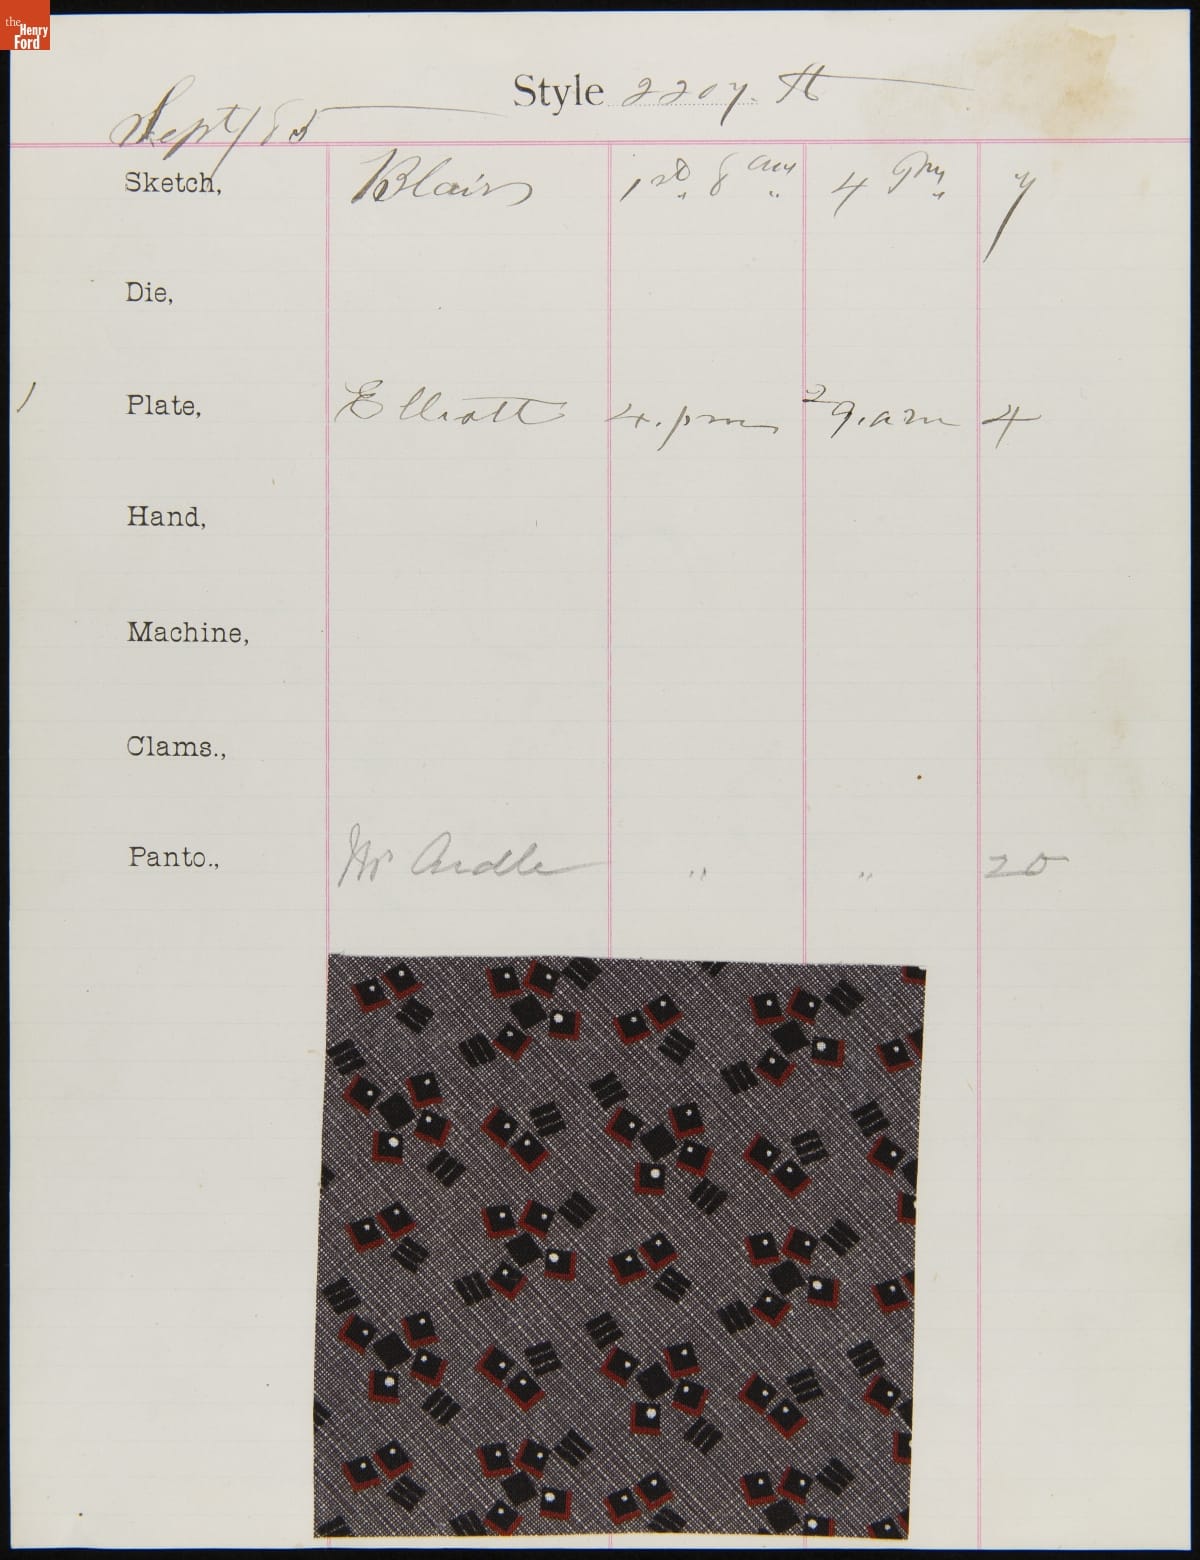 the
Henry
Ford
Style 2207. H
Sept/85
Sketch, Blair 1st 8 am 4 Pm 7
Die,
1 Plate, Elliott 4. pm 2 9. am 4
Hand,
Machine,
Clams.,
Panto., Mc Ardle " " 20